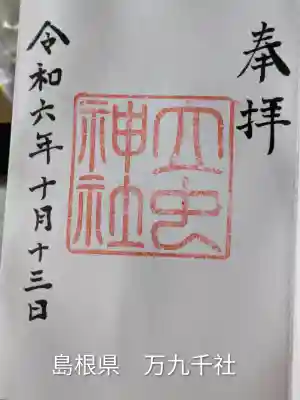 奉拝
立虫
神社
令和六年十月十三日
島根県　万九千社